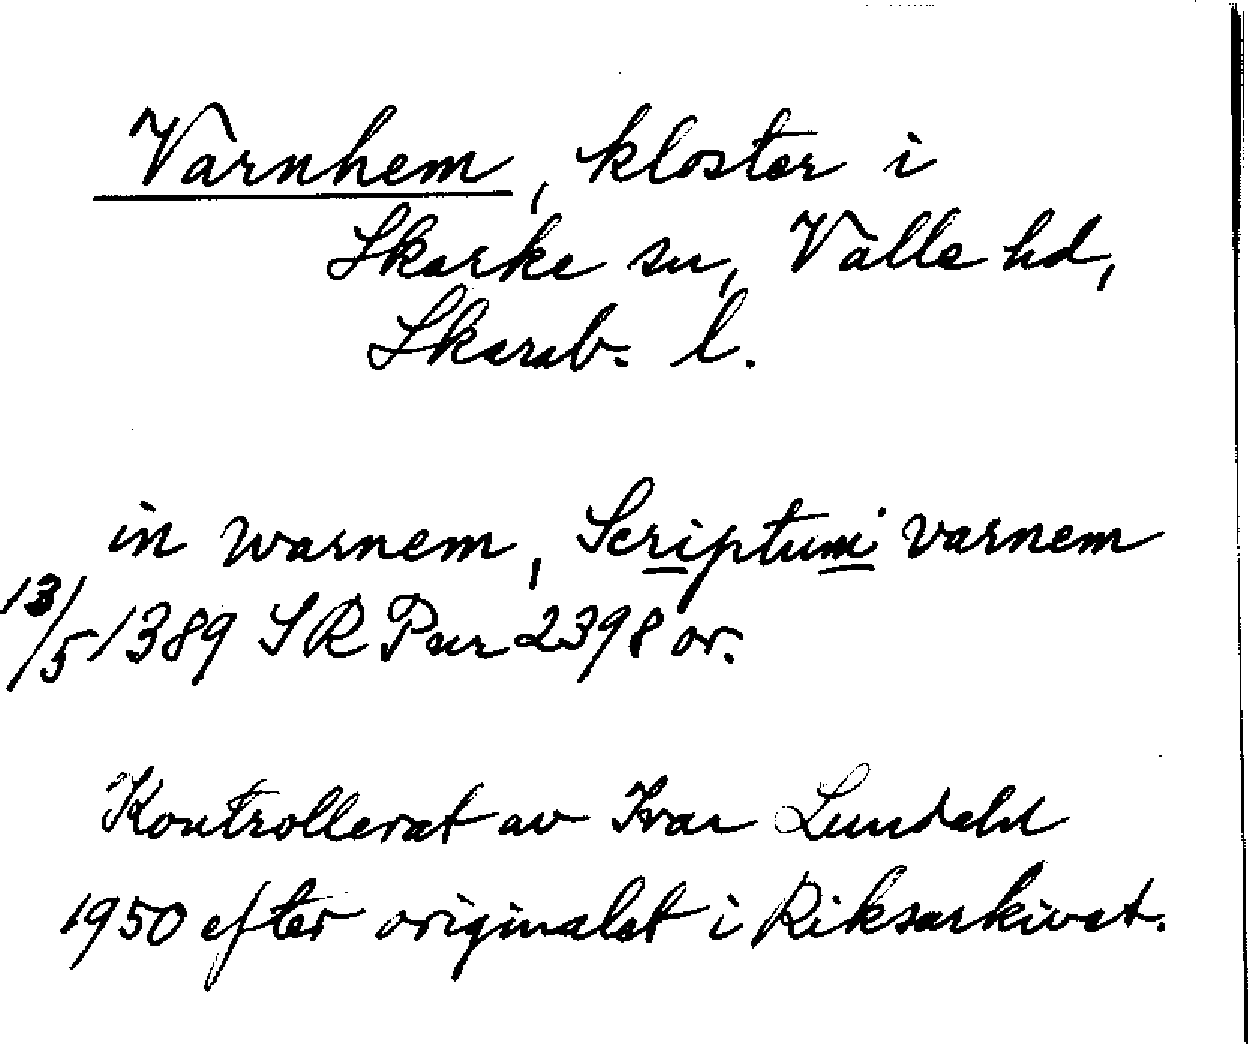 Varnhem, kloster i
Skarke sn, Valle hd,
Skarab. l.
in warnem, Scriptum varnem
13/5 1389 SR Pur 2398 or.
Kontrollerat av Ivar Lundahl
1950 efter originalet i Riksarkivet.